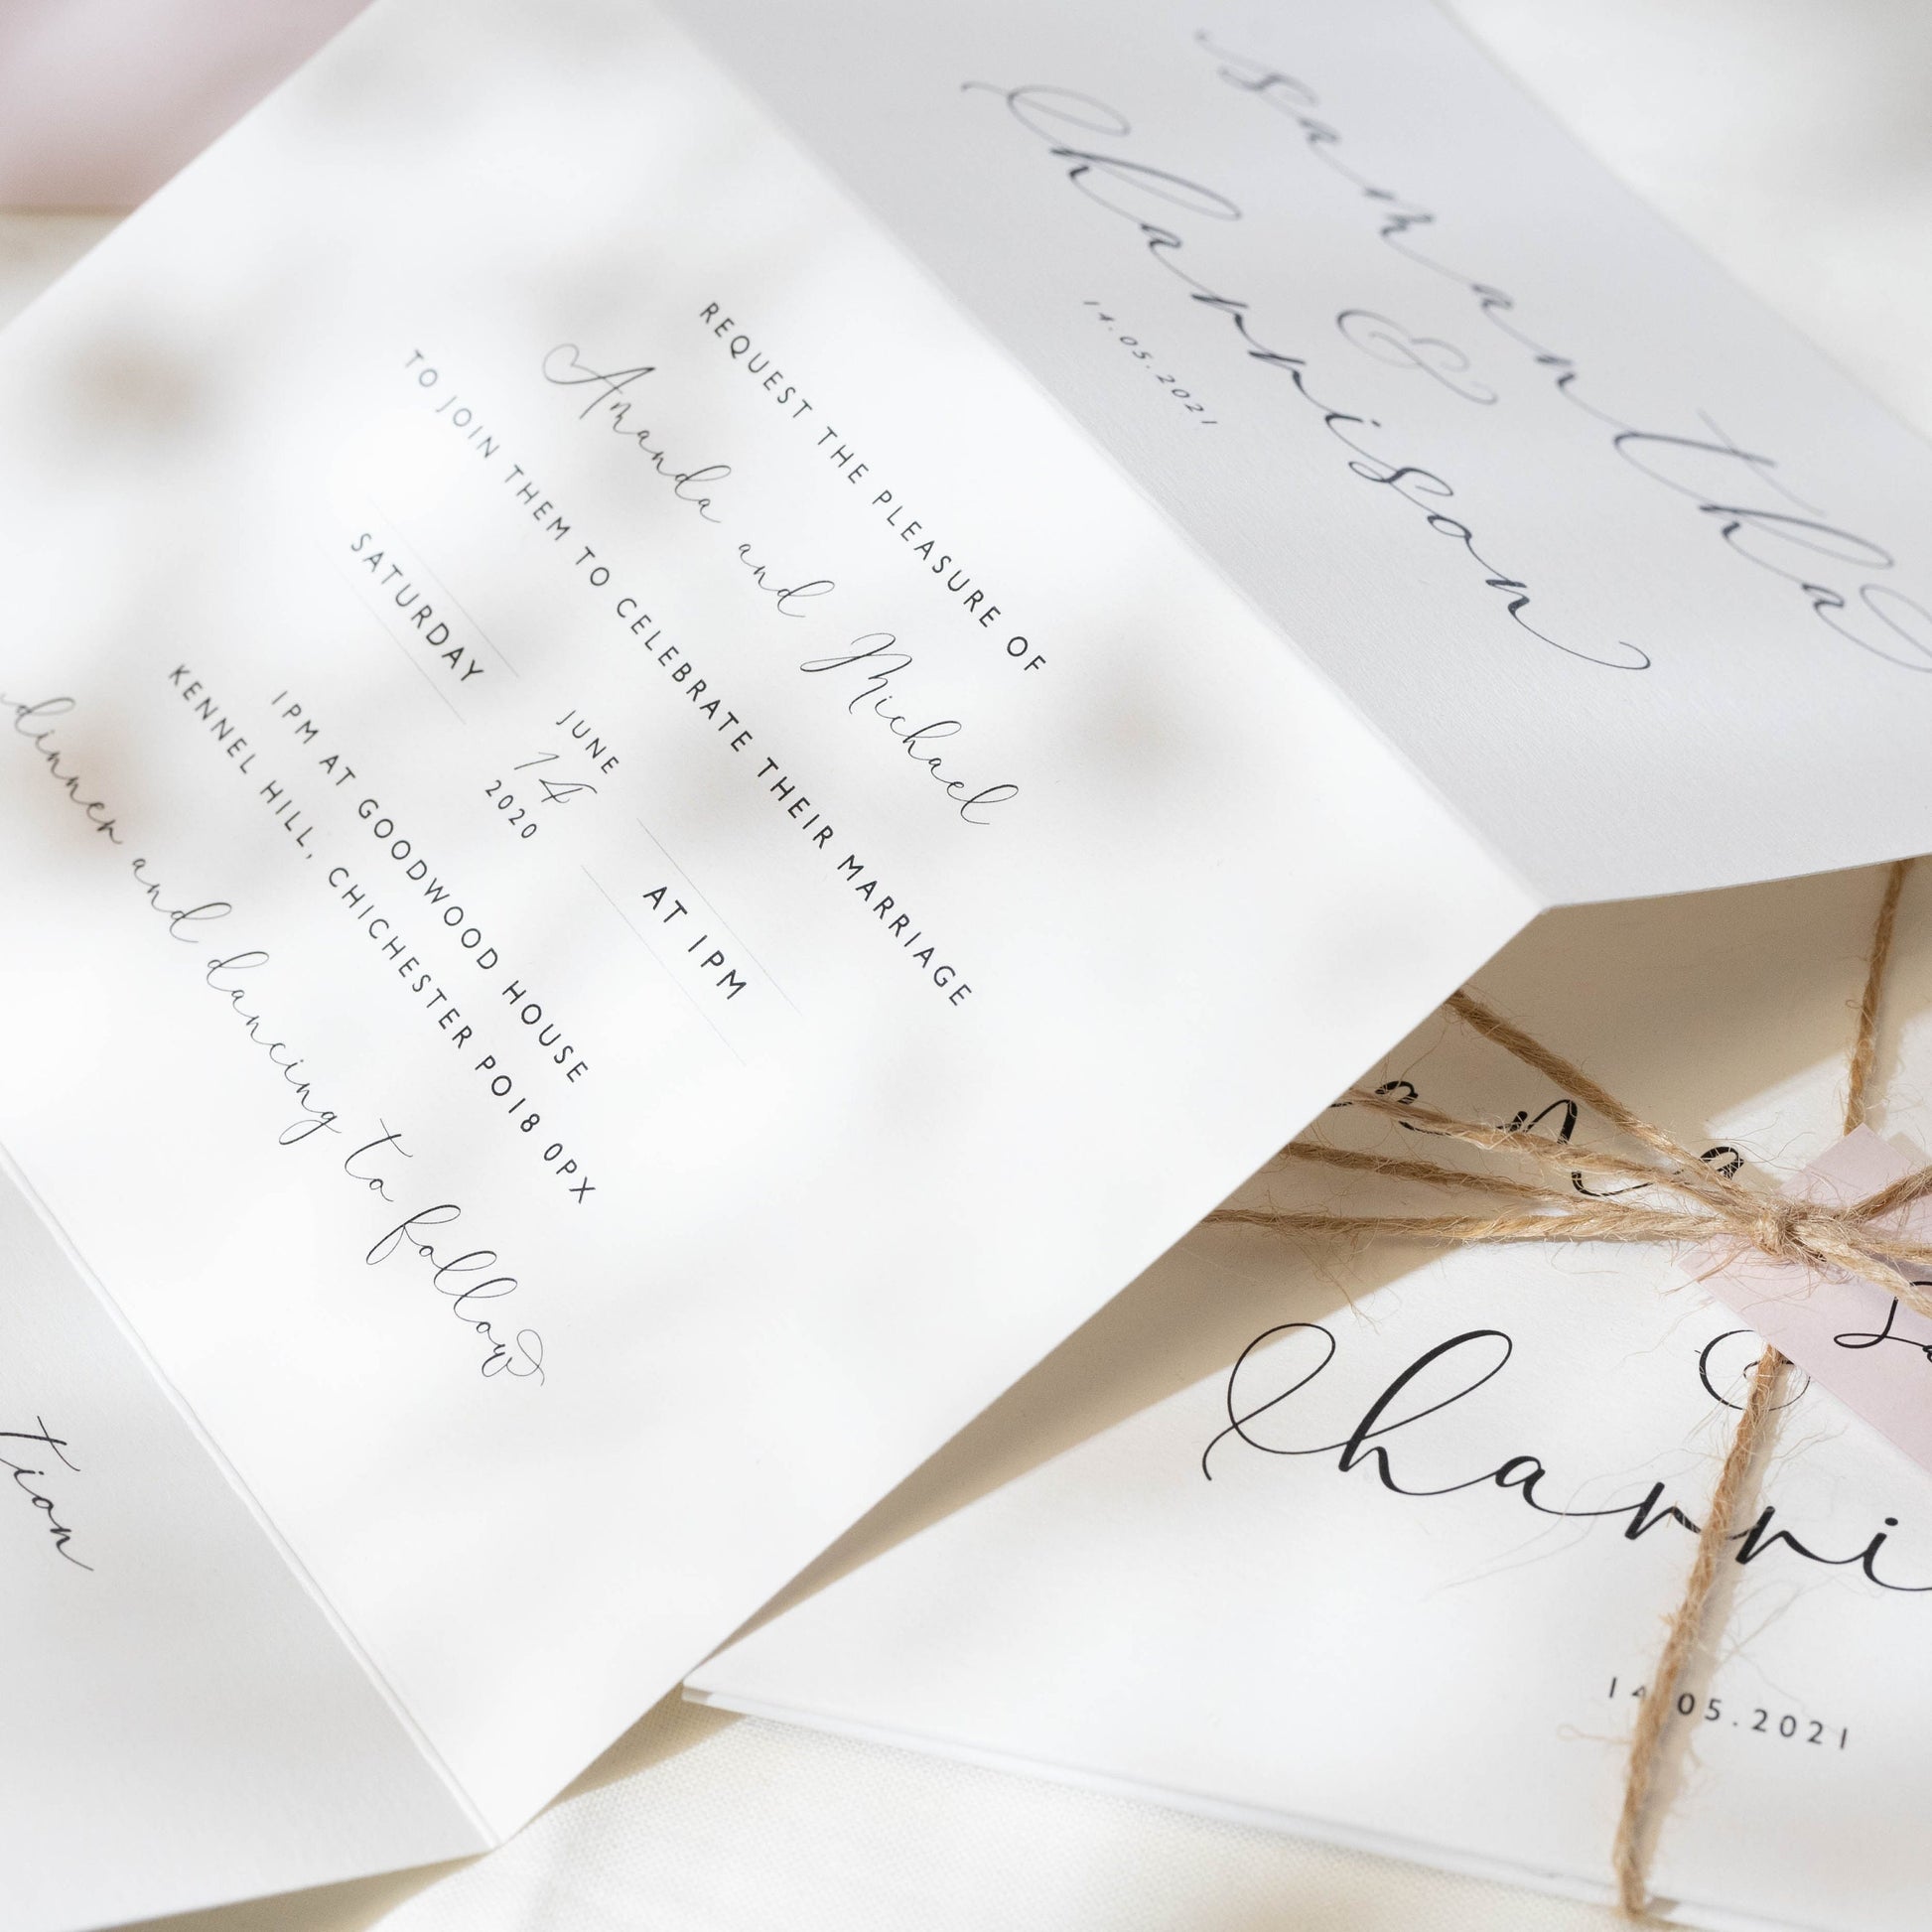 samantha
&
Harrison
14.05.2021
REQUEST THE PLEASURE OF
Amanda and Michael
TO JOIN THEM TO CELEBRATE THEIR MARRIAGE
SATURDAY
JUNE
14
2020
AT 1PM
1PM AT GOODWOOD HOUSE
KENNEL HILL, CHICHESTER PO18 0PX
dinner and dancing to follow
tion
&
Harri
14.05.2021